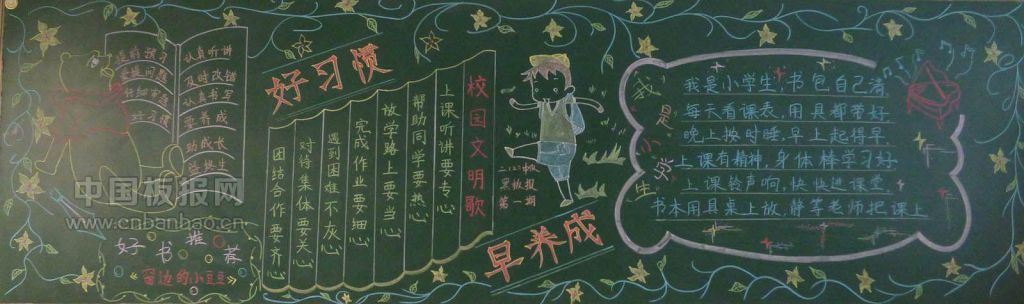 认真听讲
及时改错
认真书写
要养成
助成长
益终生
好书推荐
《窗边的小豆豆》
好习惯
早养成
校园文明歌
上课听讲要专心
帮助同学要热心
放学路上要当心
完成作业要细心
遇到困难不灰心
对待集体要关心
团结合作要齐心
二.(2)班
黑板报
第一期
我是小学生
我是小学生,书包自己清
每天看课表,用具都带好
晚上按时睡,早上起得早
上课有精神,身体棒学习好
上课铃声响,快快进课堂
书本用具桌上放,静等老师把课上
中国板报网
www.cnbanbao.cn